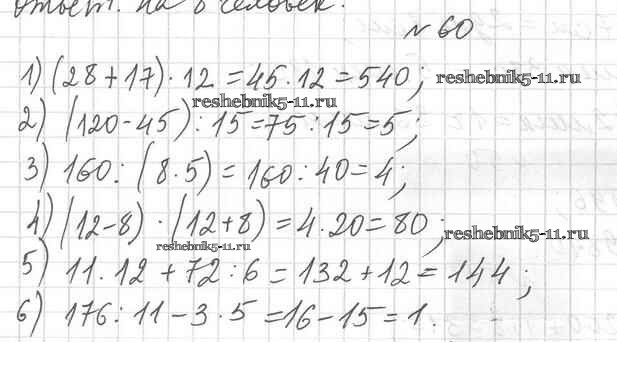 ответ: на 8 человек.
№ 60
1) (28+17)·12=45·12=540; reshebnik5-11.ru
reshebnik5-11.ru
2) (120-45):15=75:15=5;
3) 160:(8·5)=160:40=4;
4) (12-8)·(12+8)=4·20=80; reshebnik5-11.ru
reshebnik5-11.ru
5) 11·12+72:6=132+12=144;
6) 176:11-3·5=16-15=1.